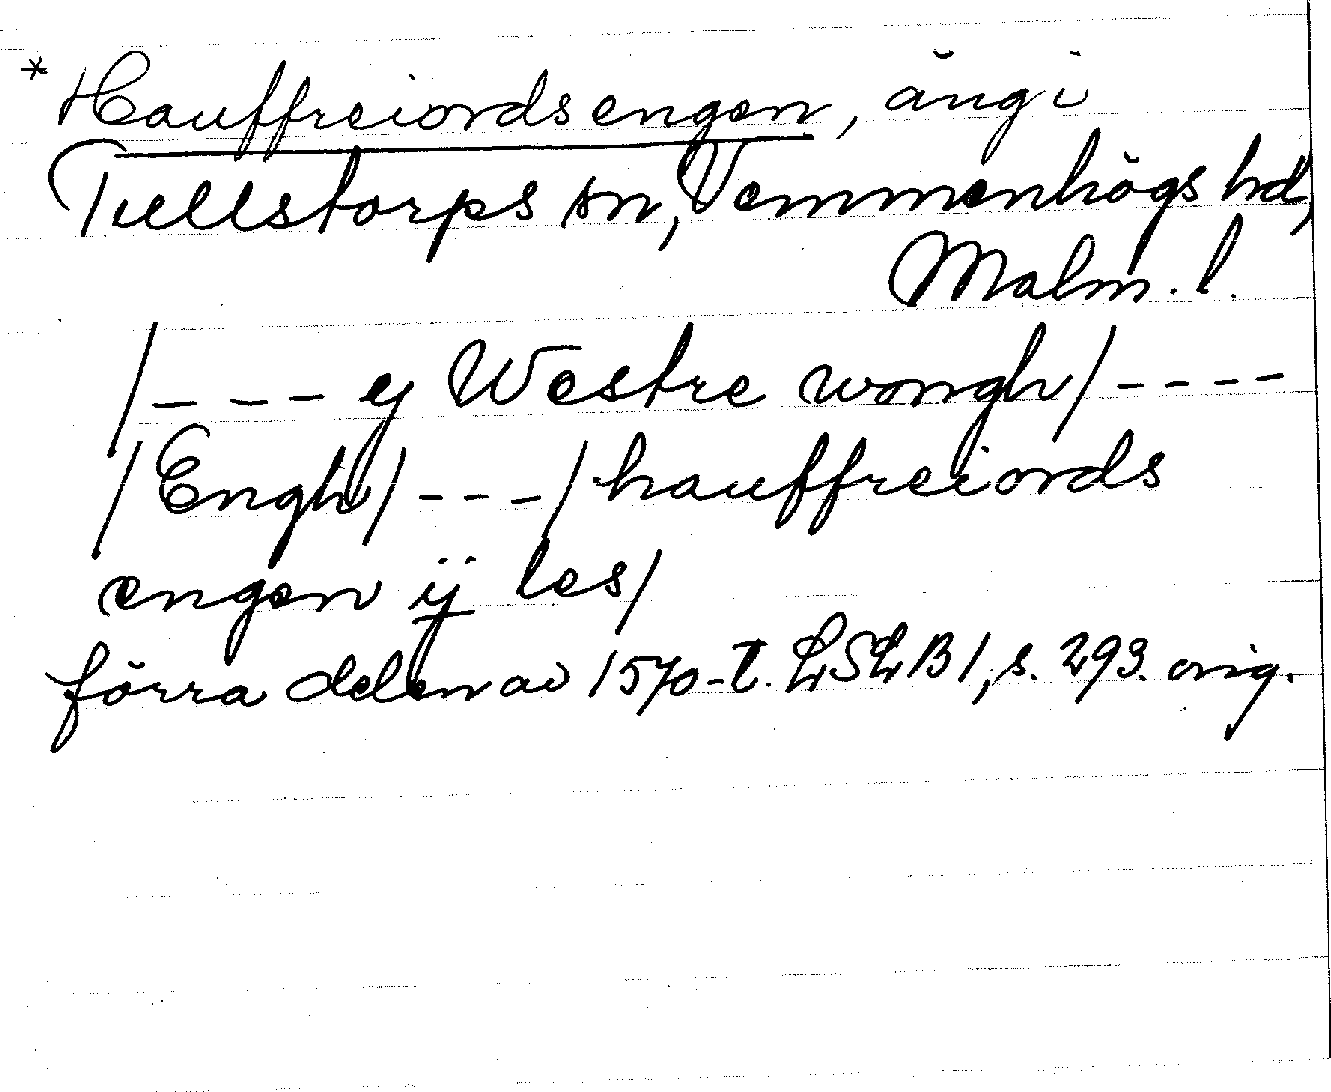 * Hauffreiordsengen, äng i
Tullstorps sn, Vemmenhögs hd,
Malm. l.
/_ _ _ ej Westre wongh/ _ _ _ _
/Engh/ _ _ _/ hauffreiords
engen ij les/
förra delen av 1570-t. LSLB 1, s. 293. orig.